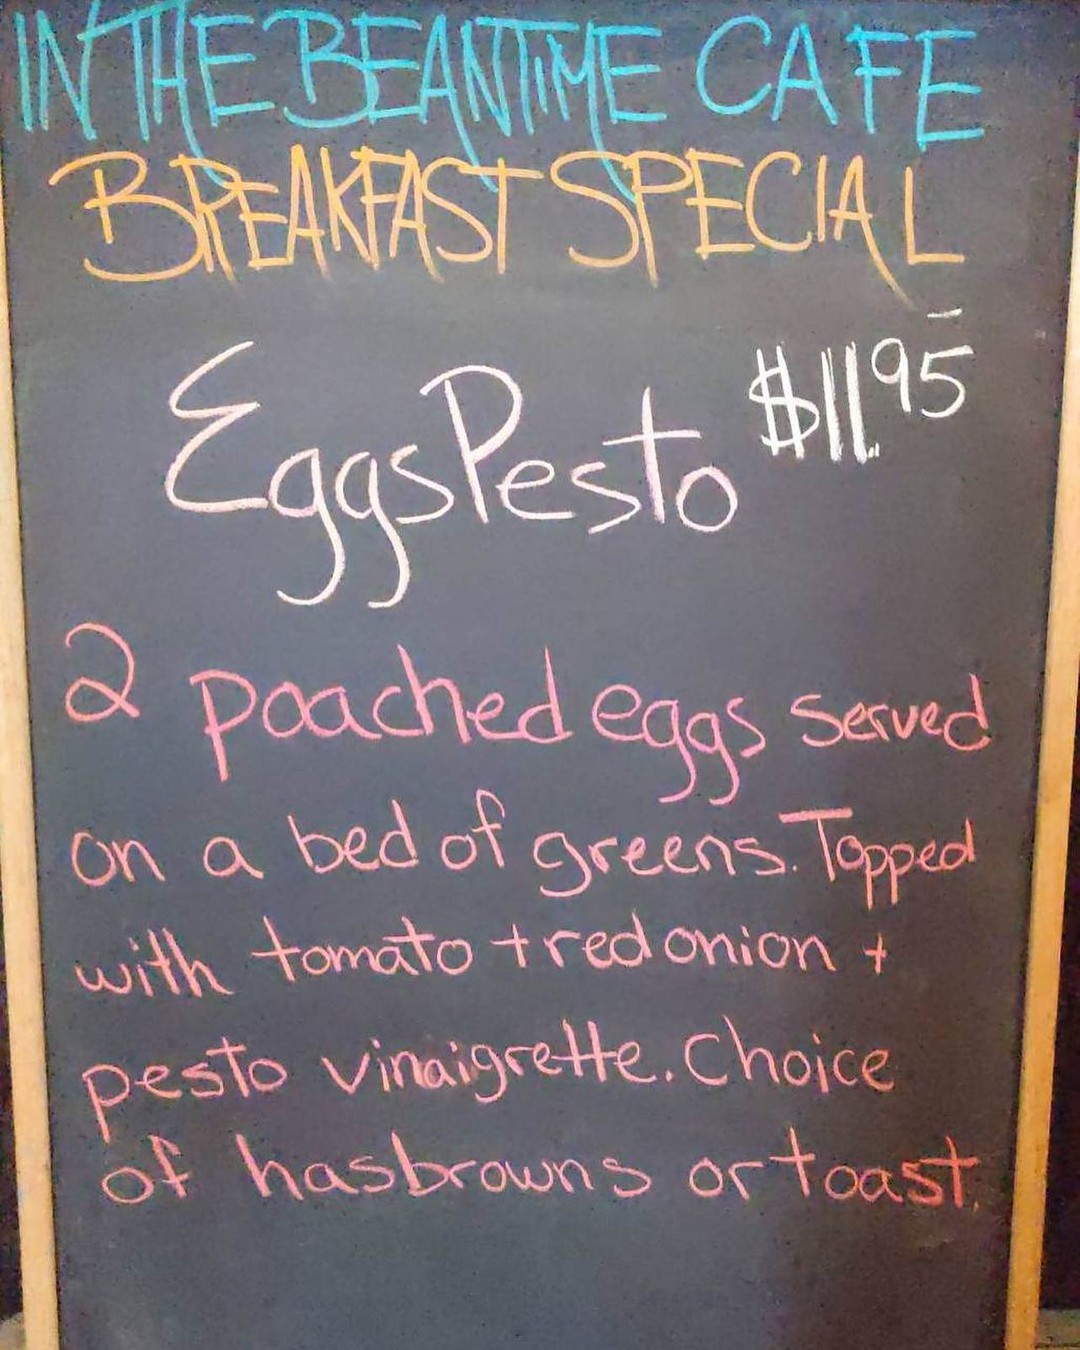 IN THE BEANTIME CAFE
BREAKFAST SPECIAL
Eggs Pesto $11.95
2 poached eggs served
on a bed of greens. Topped
with tomato + red onion +
pesto vinaigrette. Choice
of hasbrowns or toast.